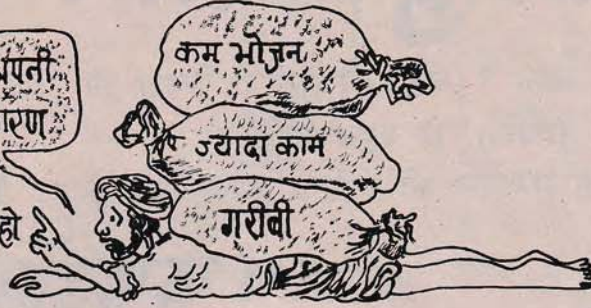 पनी
ारण
हो
कम भोजन
ज्यादा काम
गरीबी